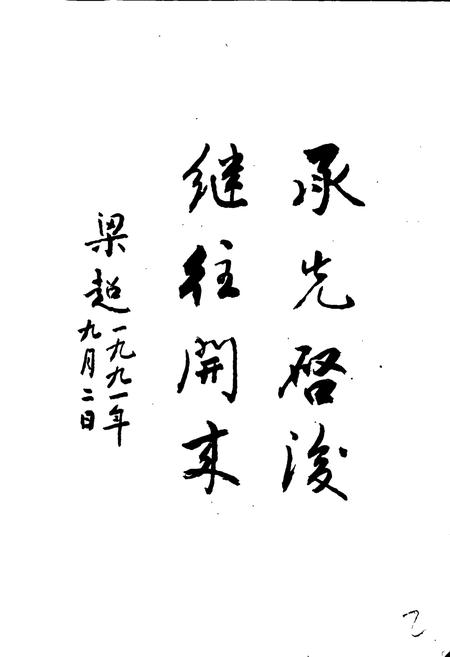 承先啓後
继往開来
梁超
一九九一年
九月二日